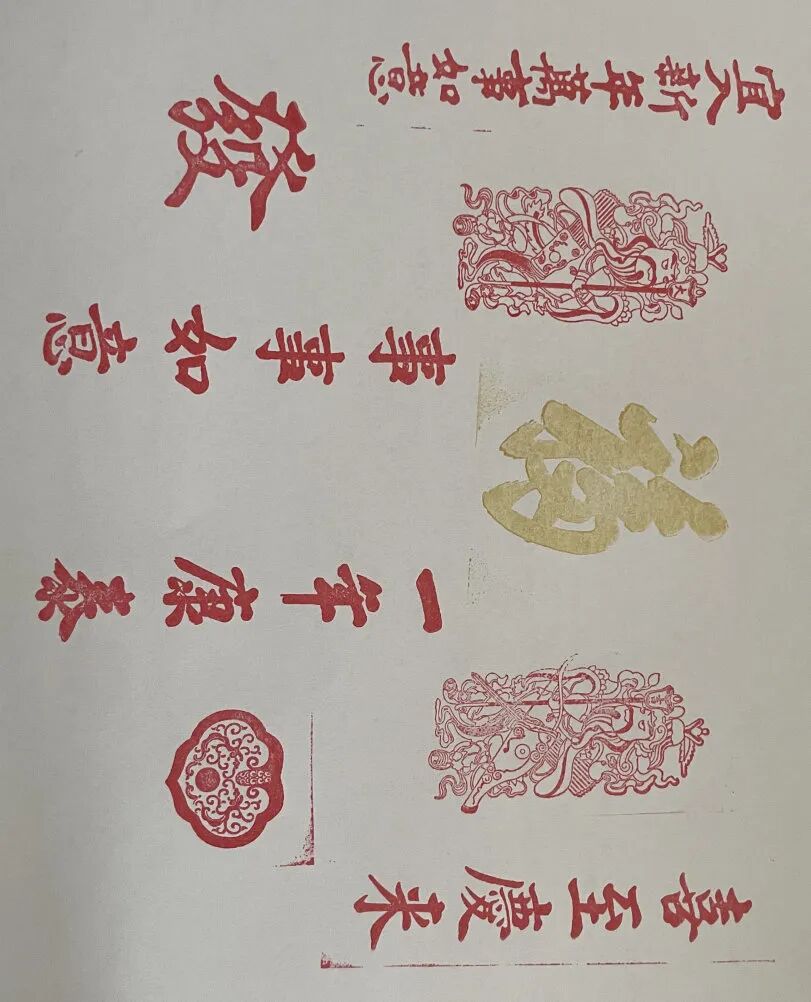 喜至慶来
一年康泰
福
事事如意
發
宜入新年萬事如意